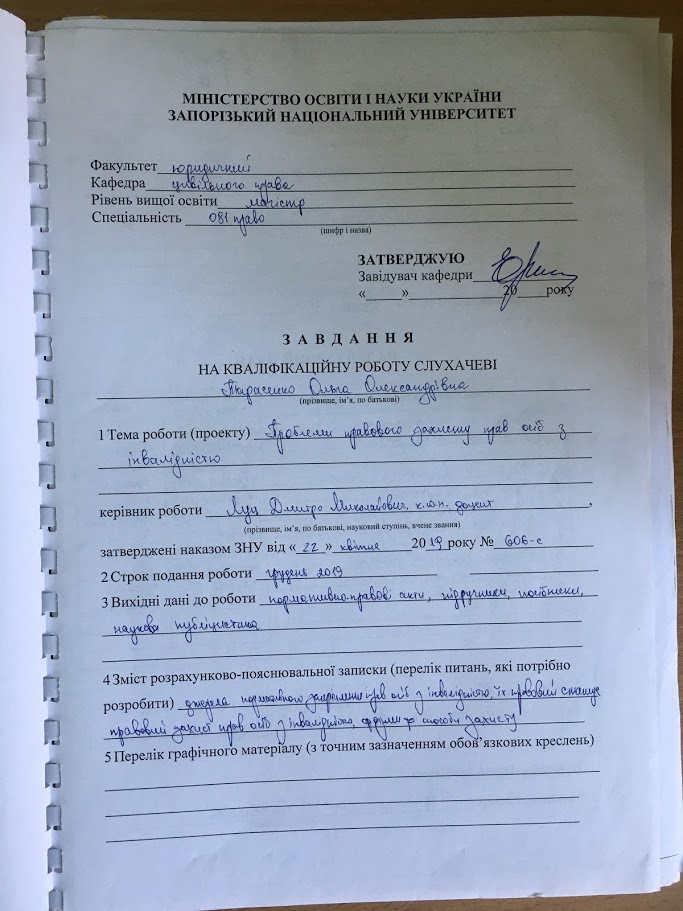 МІНІСТЕРСТВО ОСВІТИ І НАУКИ УКРАЇНИ
ЗАПОРІЗЬКИЙ НАЦІОНАЛЬНИЙ УНІВЕРСИТЕТ
Факультет юридичний
Кафедра цивільного права
Рівень вищої освіти магістр
Спеціальність 081 право
(шифр і назва)
ЗАТВЕРДЖУЮ
Завідувач кафедри
« » 20 року
З А В Д А Н Н Я
НА КВАЛІФІКАЦІЙНУ РОБОТУ СЛУХАЧЕВІ
Тарасенко Ольга Олександрівна
(прізвище, ім’я, по батькові)
1 Тема роботи (проекту) Проблеми правового захисту прав осіб з
інвалідністю
керівник роботи Луц Дмитро Миколайович, к.ю.н. доцент,
(прізвище, ім’я, по батькові, науковий ступінь, вчене звання)
затверджені наказом ЗНУ від « 22 » квітня 2019 року № 606-с
2 Строк подання роботи грудень 2019
3 Вихідні дані до роботи нормативно-правові акти, підручники, посібники,
наукова публіцистика
4 Зміст розрахунково-пояснювальної записки (перелік питань, які потрібно
розробити) джерела нормативного закріплення прав осіб з інвалідністю, їх правовий статус
правовий захист прав осіб з інвалідністю, форми та способи захисту
5 Перелік графічного матеріалу (з точним зазначенням обов’язкових креслень)